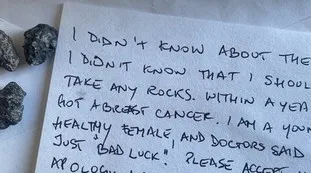 I DIDN'T KNOW ABOUT THE
I DIDN'T KNOW THAT I SHOUL
TAKE ANY ROCKS. WITHIN A YEA
GOT A BREAST CANCER. I AM A YOUN
HEALTHY FEMALE, AND DOCTORS SAID
JUST "BAD LUCK". PLEASE ACCEPT
APOLOGY